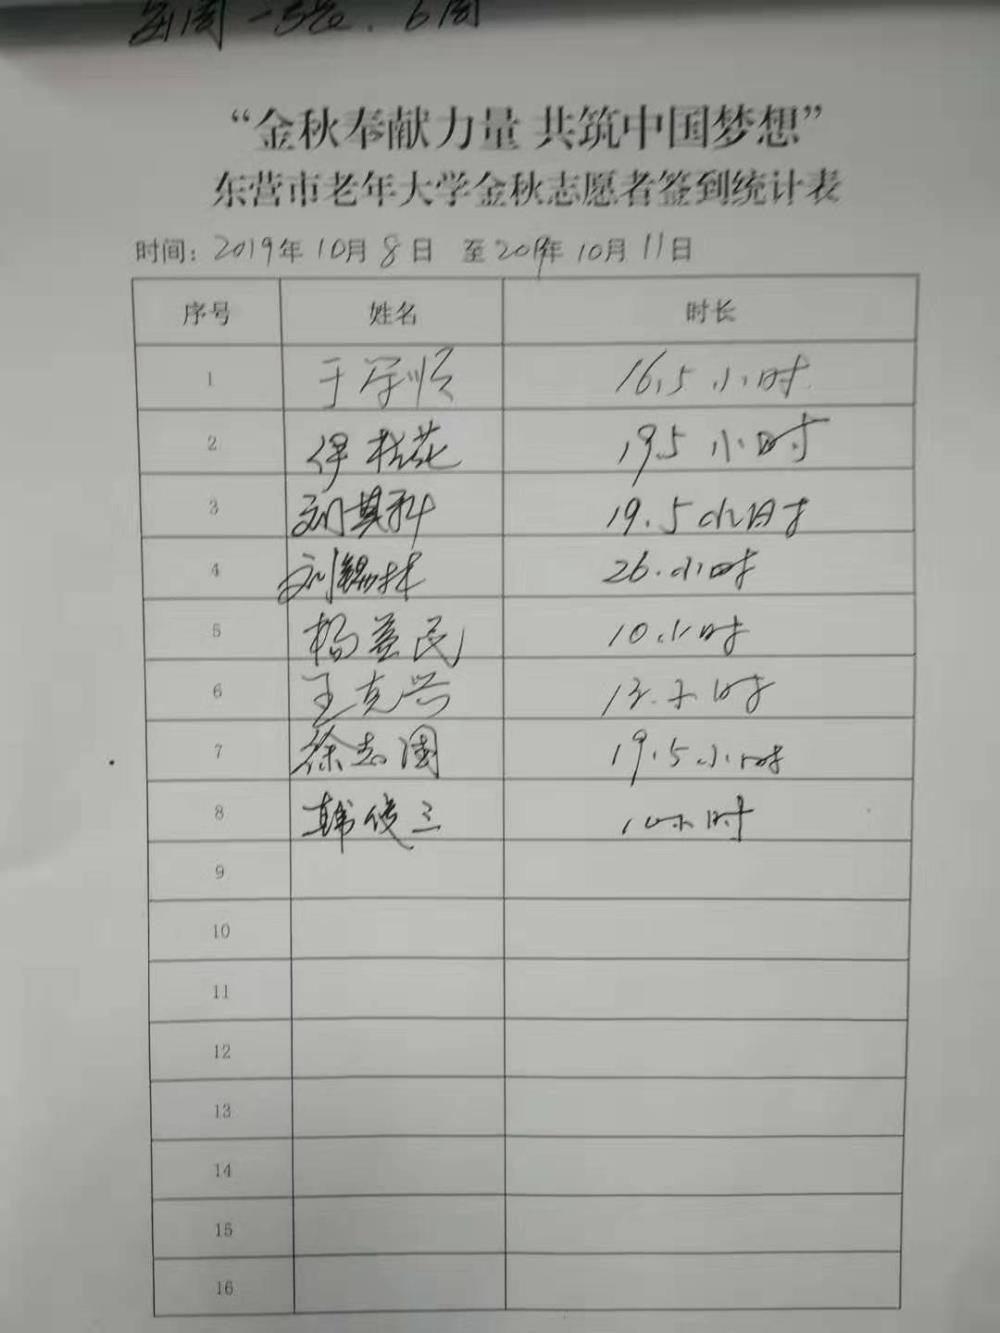 “金秋奉献力量 共筑中国梦想”
东营市老年大学金秋志愿者签到统计表
时间：2019年10月8日 至2019年10月11日
序号 姓名 时长
1 于学顺 16.5小时
2 伊桂花 19.5小时
3 刘其科 19.5小时
4 刘锡林 26.小时
5 杨益民 10.小时
6 王克兴 小时
7 徐志国 19.5.小时
8 韩俊三 小时
9
10
11
12
13
14
15
16